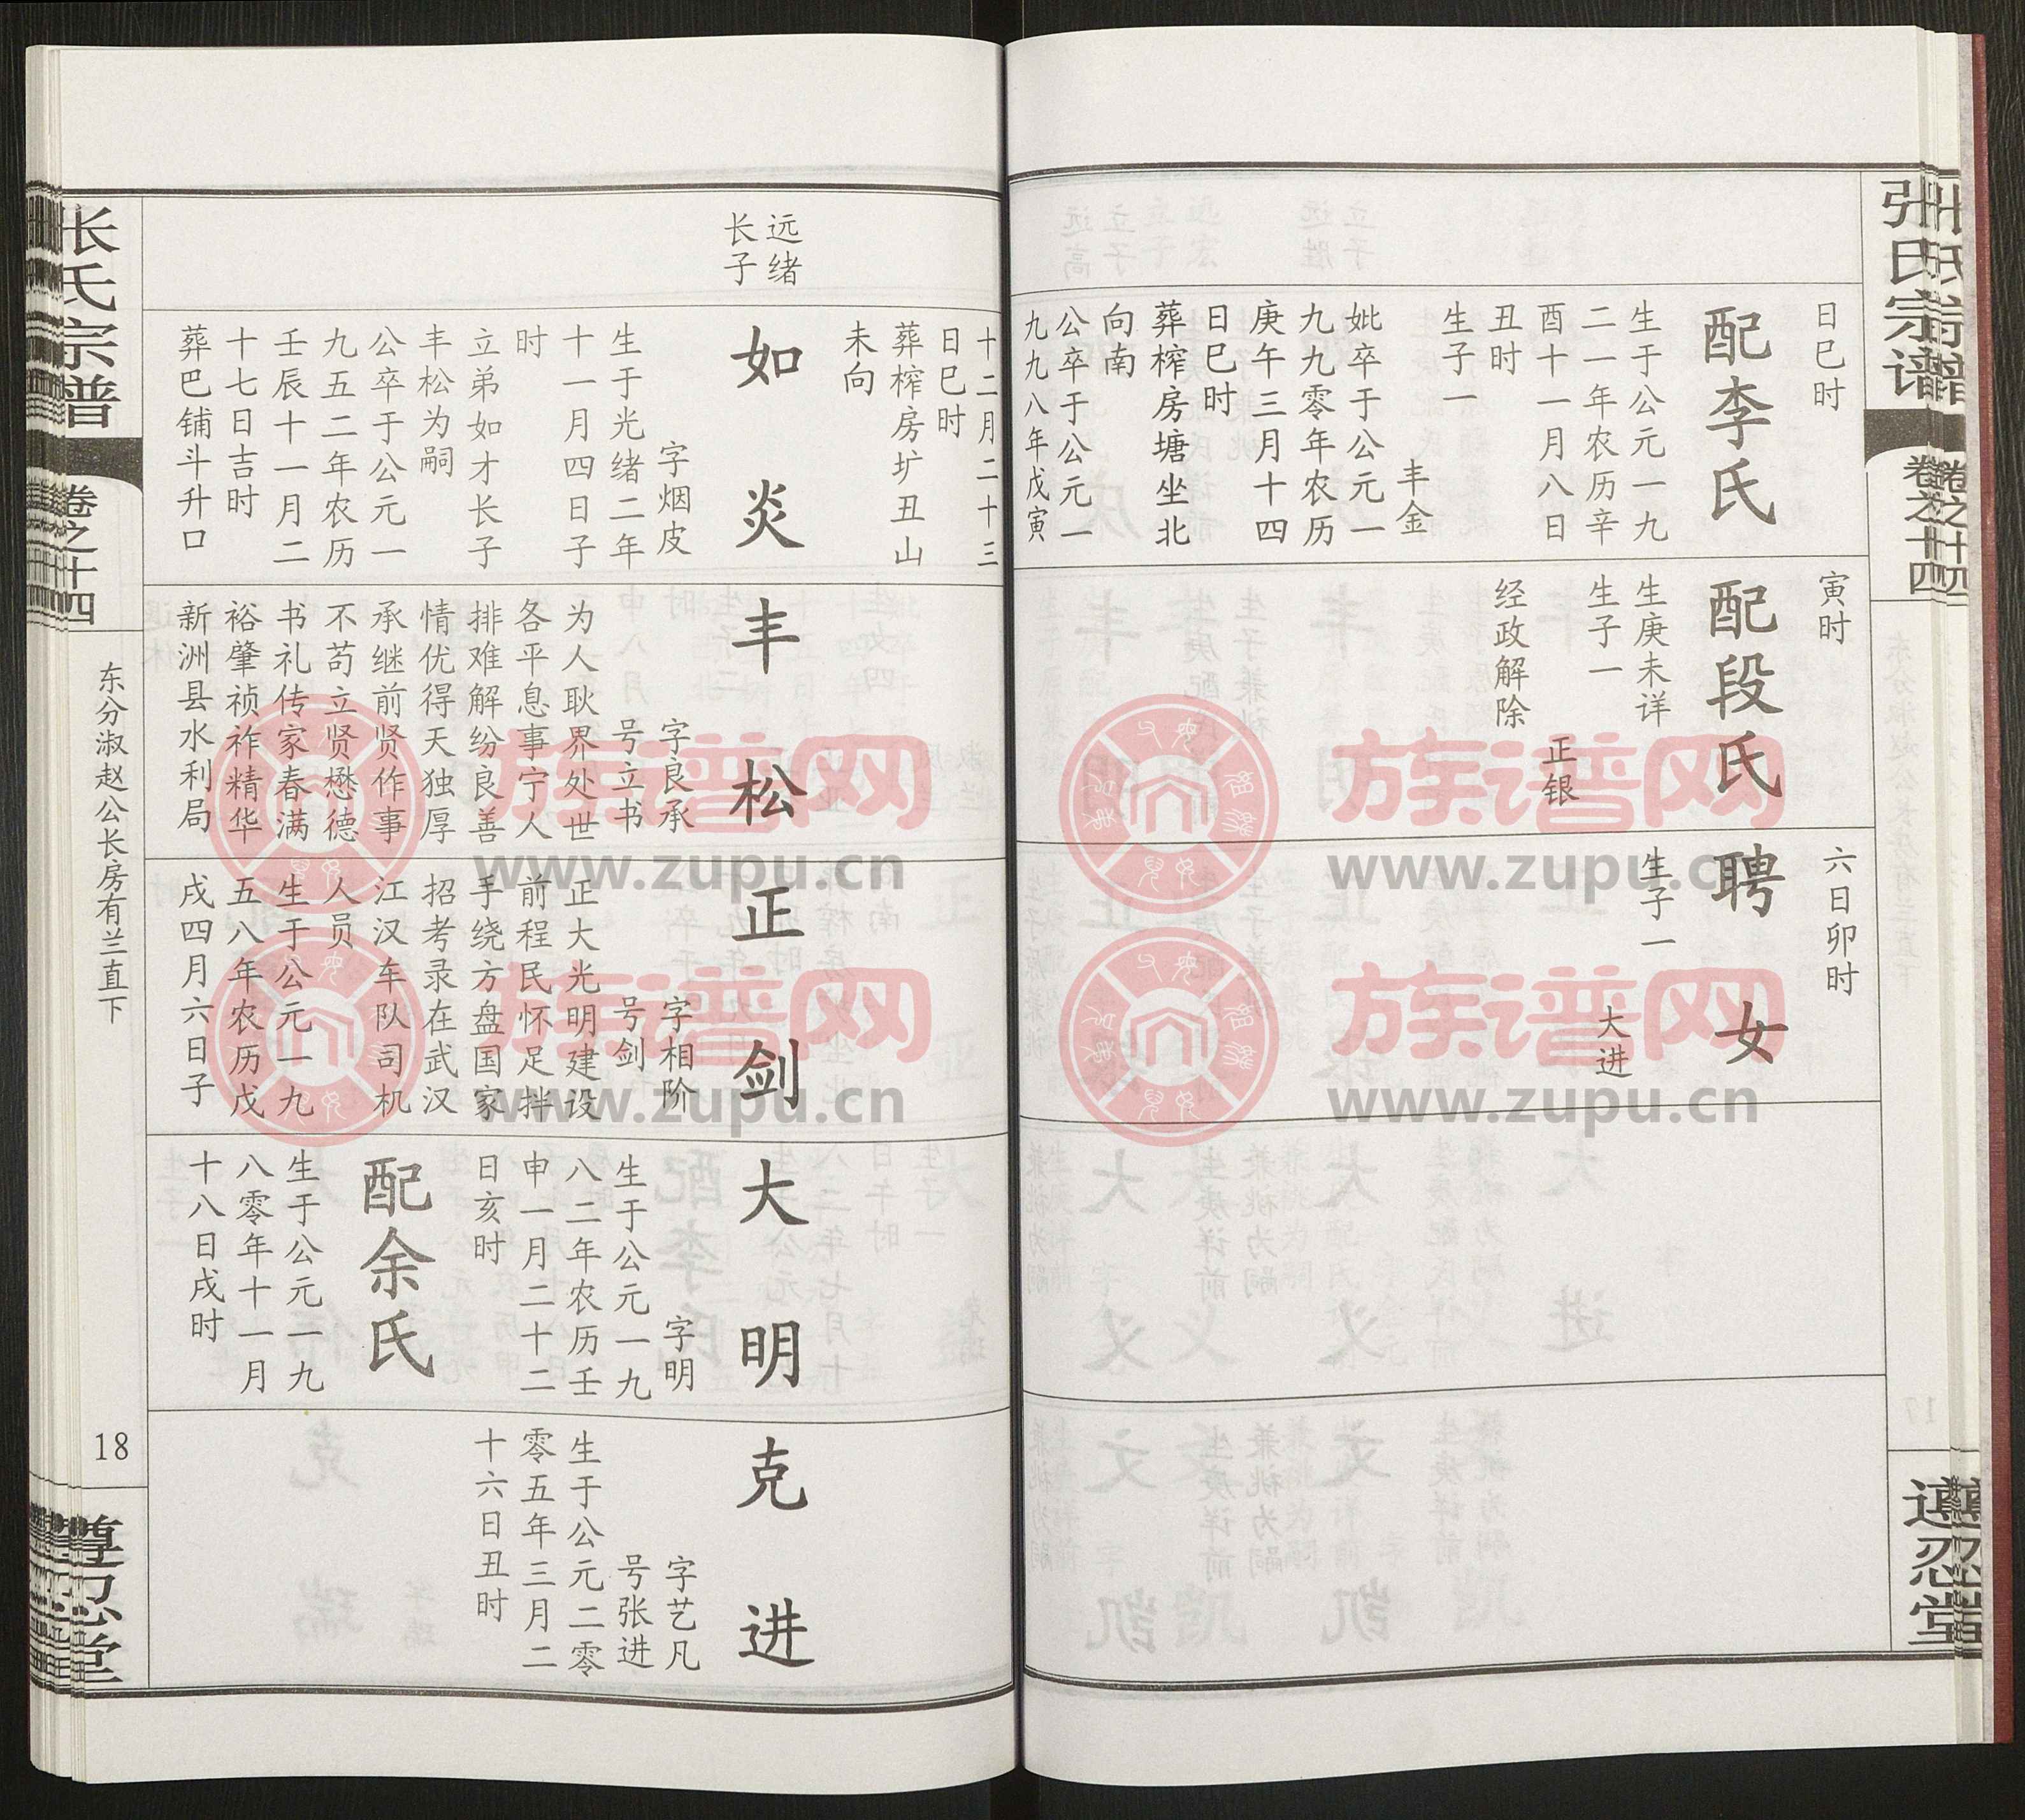 张氏宗谱
卷之十四
遵忍堂
日巳时
配李氏
生于公元一九
二一年农历辛
酉十一月八日
丑时
生子一
丰金
妣卒于公元一
九九零年农历
庚午三月十四
日巳时
葬榨房塘坐北
向南
公卒于公元一
九九八年戊寅
寅时
配段氏
生庚未详
生子一
正银
经政解除
六日卯时
聘女
生子一
大进
十二月二十三
日巳时
葬榨房圹丑山
未向
远绪
长子
如炎
字烟皮
生于光绪二年
十一月四日子
时
立弟如才长子
丰松为嗣
公卒于公元一
九五二年农历
壬辰十一月二
十七日吉时
葬巴铺斗升口
丰松
字良承
号立书
为人耿界处世
各平息事宁人
排难解纷良善
情优得天独厚
承继前贤作事
不苟立贤懋德
书礼传家春满
裕肇祯祚精华
新洲县水利局
正剑
字相阶
号剑
正大光明建设
前程民怀足拌
手绕方盘国家
招考录在武汉
江汉车队司机
人员
生于公元一九
五八年农历戊
戌四月六日子
大明
字明
生于公元一九
八二年农历壬
申一月二十二
日亥时
配余氏
生于公元一九
八零年十一月
十八日戌时
克进
字艺凡
号张进
生于公元二零
零五年三月二
十六日丑时
张氏宗谱
卷之十四
东分淑赵公长房有兰直下
18
遵忍堂
族谱网
www.zupu.cn
族谱网
www.zupu.cn
族谱网
www.zupu.cn
族谱网
www.zupu.cn